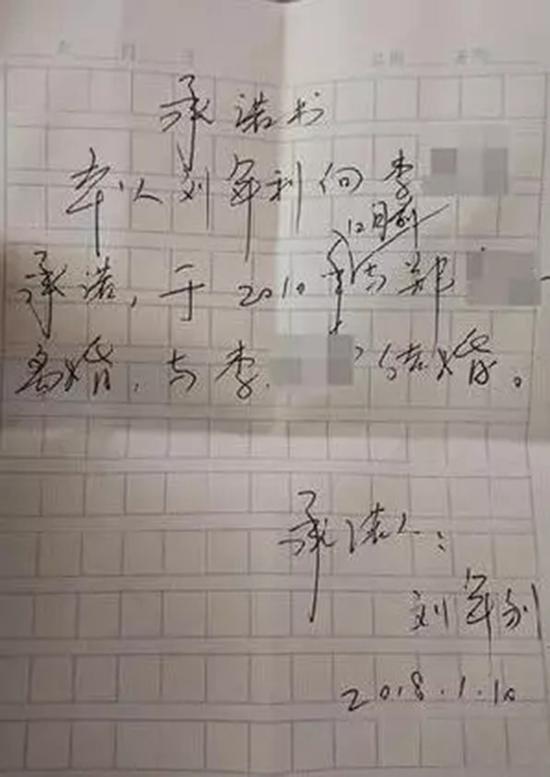 承诺书
本人刘军利向李
12月前
承诺,于2010年与郑
离婚,与李 结婚。
承诺人:
刘军利
2018.1.10